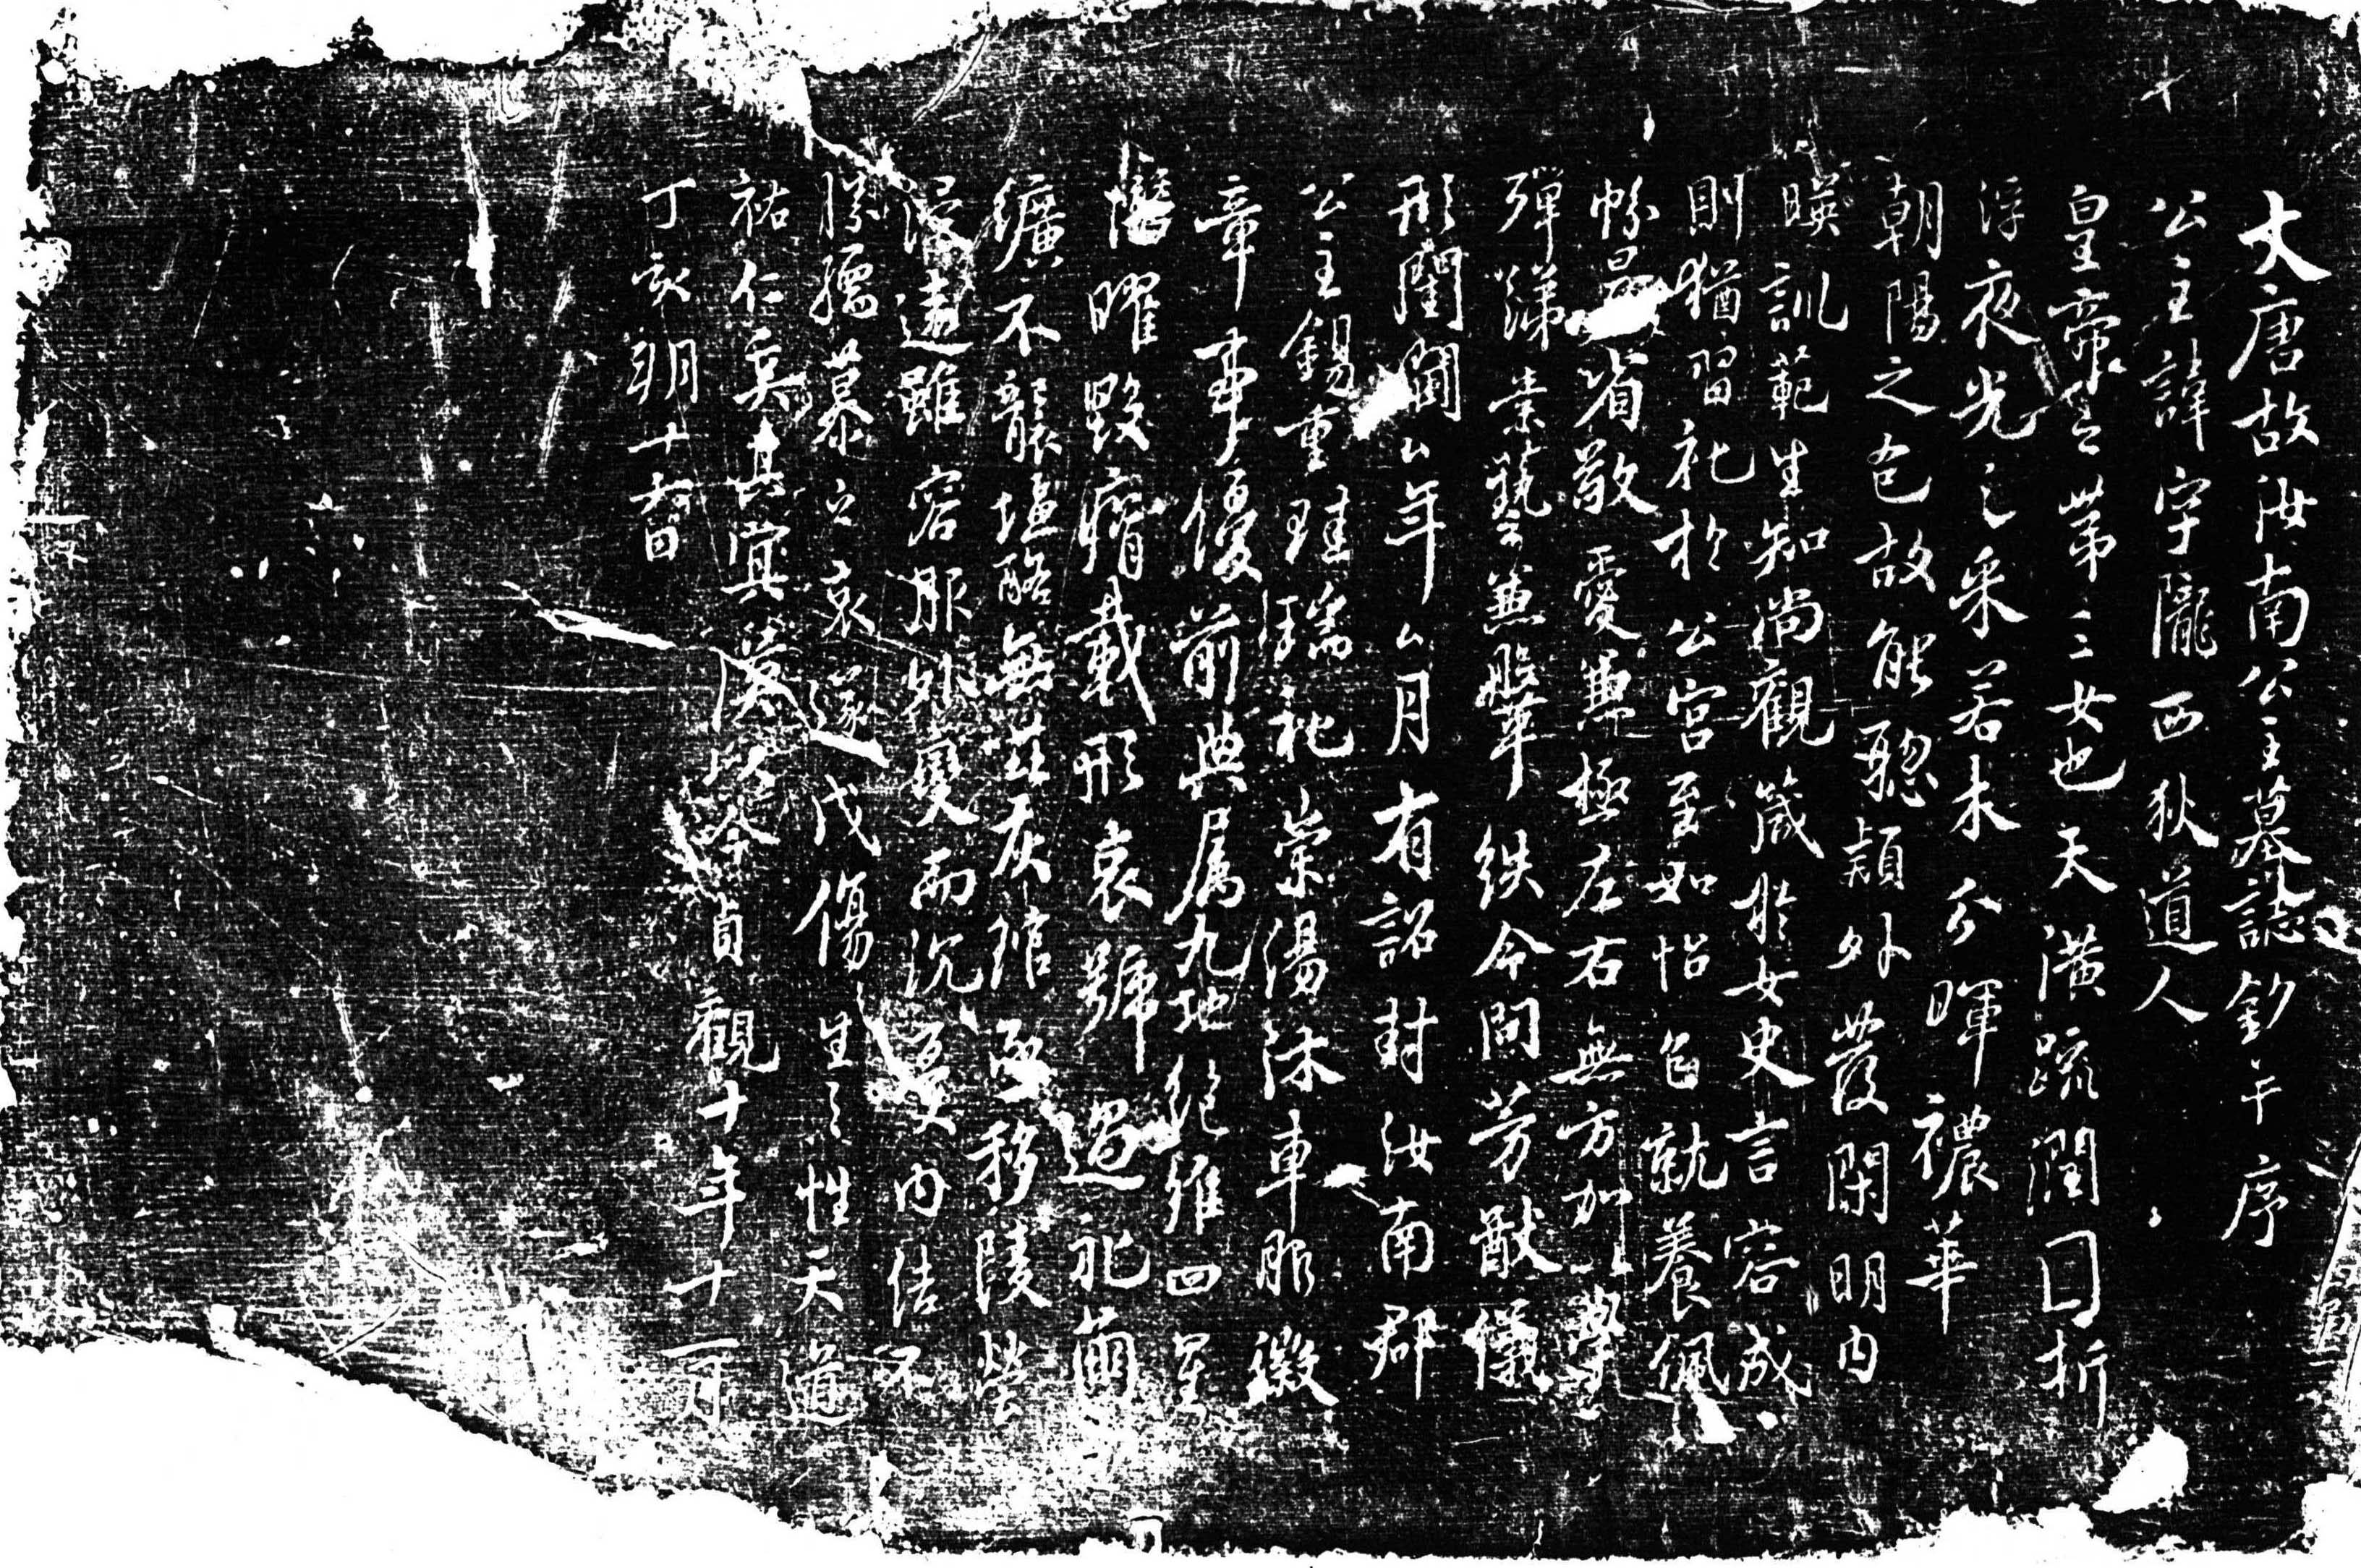 大唐故汝南公主墓誌銘并序
公主諱字隴西狄道人
皇帝之第三女也天潢疏潤圓折
浮夜光之采若木分暉穠華
朝陽之色故能聰穎外發閑明内
暎訓範生知尚觀箴於女史言容成
則猶習礼於公宮至如怡色就養佩
帉晨省敬愛兼極左右無方加以學
殫綈素藝兼鞶紩令問芳猷儀
形閨閫厶年厶月有詔封汝南郡
公主錫重珪瑞礼崇湯沐車服徽
章事優前典属九地絶維四星
潛曜毀瘠載形哀號過礼繭
纊不襲塩酪無茲灰琯亟移陵塋
浸遠雖容服外變而沉憂内結不
勝孺慕之哀遂成傷生之性天道
祐仁奚其冥漠以今貞觀十年十一月
丁亥朔十六日